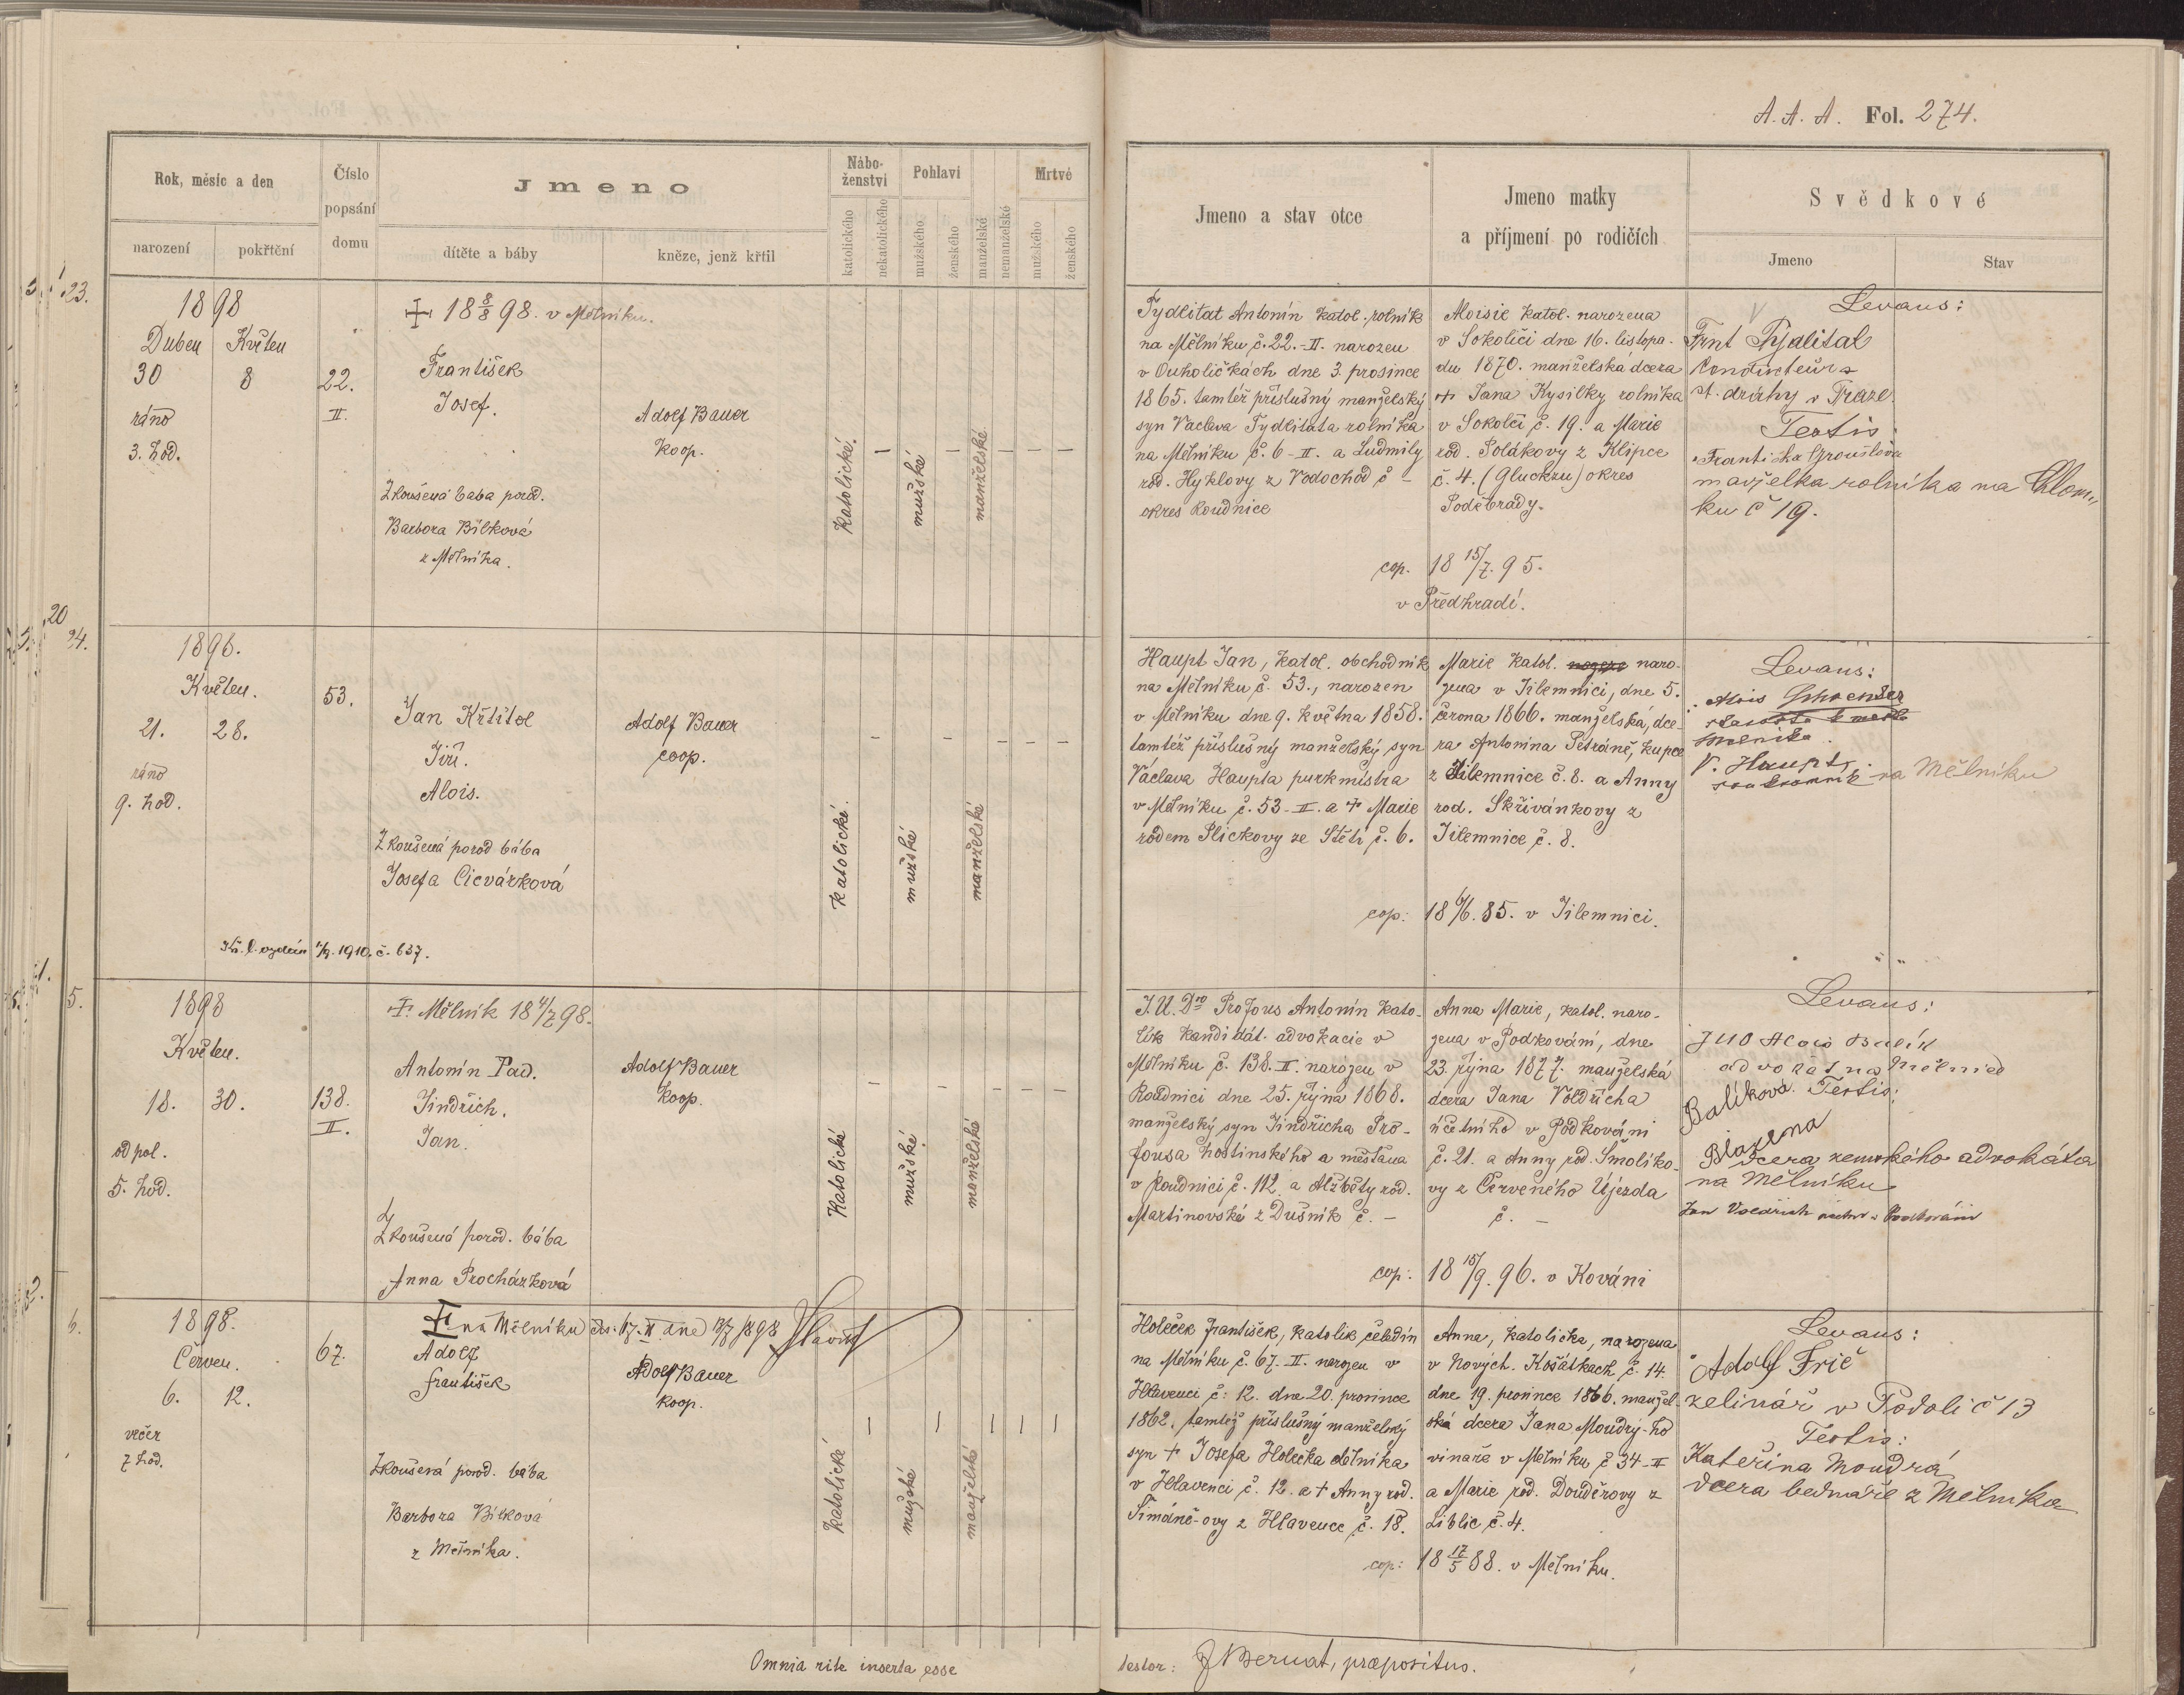 A. A. A. Fol. 274.
Rok, měsíc a den
Číslo popsání domu
Jmeno
Nábo-ženství
Pohlaví
Mrtvé
narození
pokřtění
dítěte a báby
kněze, jenž křtil
katolického
nekatolického
mužského
ženského
manželské
nemanželské
mužského
ženského
Jmeno a stav otce
Jmeno matky
a příjmení po rodičích
Svědkové
Jmeno
Stav
23.
1898
Duben Květen
30 8
ráno
3. hod.
22.
II.
18 8/8 98. v Mělníku.
František
Josef.
Zkoušená baba porod.
Barbora Bílková
z Mělníka.
Adolf Bauer
Koop.
Katolické.
mužské
manželské
Tydlitat Antonín katol. rolník
na Mělníku č. 22.-II. narozen
v Ouholičkách dne 3. prosince
1865. tamtéž příslušný manželský
syn Václava Tydlitata rolníka
na Mělníku č. 6-II. a Ludmily
rod. Hyklovy z Vodochod č -
okres Roudnice
Aloisie katol. narozena
v Sokolči dne 16. listopa-
du 1870. manželská dcera
+ Jana Kysilky rolníka
v Sokolči č. 19. a Marie
rod. Polákovy z Klipce
č. 4. (Gluckzu) okres
Poděbrady.
cop. 18 15/7. 95.
v Předhradí.
Levans:
Frnt Tydlitat
Conducteur
st. dráhy v Praze.
Testis:
Františka Groušlova
manželka rolníka na Chlom„
ku č 19.
20
24.
1898.
Květen.
21. 28.
ráno
9. hod.
53.
Jan Křtitel
Jiří.
Alois.
Zkoušená porod bába
Josefa Cicvárková
Adolf Bauer
coop.
Katolické.
mužské
manželské
Kř. l. vydán 1/9. 1910. č. 637.
Haupt Jan, katol. obchodník
na Mělníku č. 53., narozen
v Mělníku dne 9. května 1858.
tamtéž příslušný manželský syn
Václava Haupta purkmistra
v Mělníku č. 53-II. a + Marie
rodem Plickovy ze Štětí č. 6.
Marie katol. naro-
zena v Jilemnici, dne 5.
června 1866. manželská, dce-
ra Antonína Petráně, kupce
z Jilemnice č. 8. a Anny
rod. Skřivánkovy z
Jilemnice č. 8.
cop: 18 6/6. 85. v Jilemnici.
Levans:
Alois
Mělníka.
V. Haupt,
soukromník na Mělníku
5.
1898
Květen.
18. 30.
odpol.
5. hod.
138.
II.
Mělník 18 4/7 98.
Antonín Pad.
Jindřich.
Jan.
Zkoušená porod. bába
Anna Procházková
Adolf Bauer
Koop.
Katolické
mužské
manželské
J. U. Dro Profous Antonín kato-
lík kandidát advokacie v
Mělníku č. 138. II. narozen v
Roudnici dne 25. října 1868.
manželský syn Jindřicha Pro-
fousa hostinského a měšťana
v Roudnici č. 112. a Alžběty rod.
Martinovské z Dušník č. -
Anna Marie, katol. naro-
zena v Podkování, dne
23. října 1877. manželská
dcera Jana Voldřicha
účetního v Podkování
č. 21. a Anny rod. Smolíko-
vy z Červeného Újezda
č. -
cop: 18 15/9. 96. v Kování
Levans:
JUD Alois Balík
advokát na Mělníce
Testis:
Balíkova Blažena
dcera zemského advokáta
na Mělníku
Jan Voldřich v Podkování
6.
1898.
Červen.
6. 12.
večer
7 hod.
67.
na Mělníku čís. 67.-II dne 13/7 1898
Adolf
František
Zkoušená porod. bába
Barbora Bílková
z Mělníka.
Adolf Bauer
koop.
Katolické
mužské
manželské
Holeček František, katolík čeledín
na Mělníku č. 67.-II. narozen v
Hlavenci č: 12. dne 20. prosince
1862. tamtéž příslušný manželský
syn + Josefa Holečka dělníka
v Hlavenci č. 12. a + Anny rod.
Šimáně-ovy z Hlavence č. 18.
Anna, katolička, narozena
v Nových. Košátkách č. 14.
dne 19. prosince 1866. manžel-
ská dcera Jana Moudrý-ho
vinaře v Mělníku č 34-II
a Marie rod. Douděrovy z
Liblic č. 4.
cop: 18 17/5 88. v Mělníku.
Levans:
Adolf Frič
zelinář v Podolí č 13
Testis:
Kateřina Moudrá
dcera bednáře z Mělníka
Omnia rite inserta esse
testor: J Bernat, praepositus.